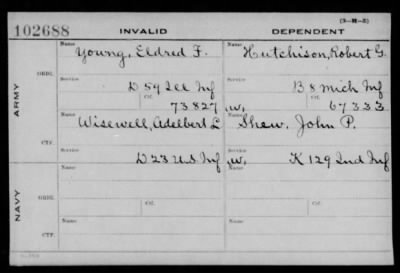 (3-M-5)
102688 INVALID DEPENDENT
Name Name
Young, Eldred F. Hutchison, Robert G.
ORDL
Service Service
D 59 Ill Inf B 8 Mich Inf
Ctf. Ctf.
73827 W, 67333
ARMY
Name Name
Wisewell, Adelbert L Shew, John P.
CTF.
Service Service
D 23 U.S. Inf W, K 129 Ind Inf
Name Name
ORDL
Service Service
Ctf. Ctf.
NAVY
Name Name
CTF.
Service Service